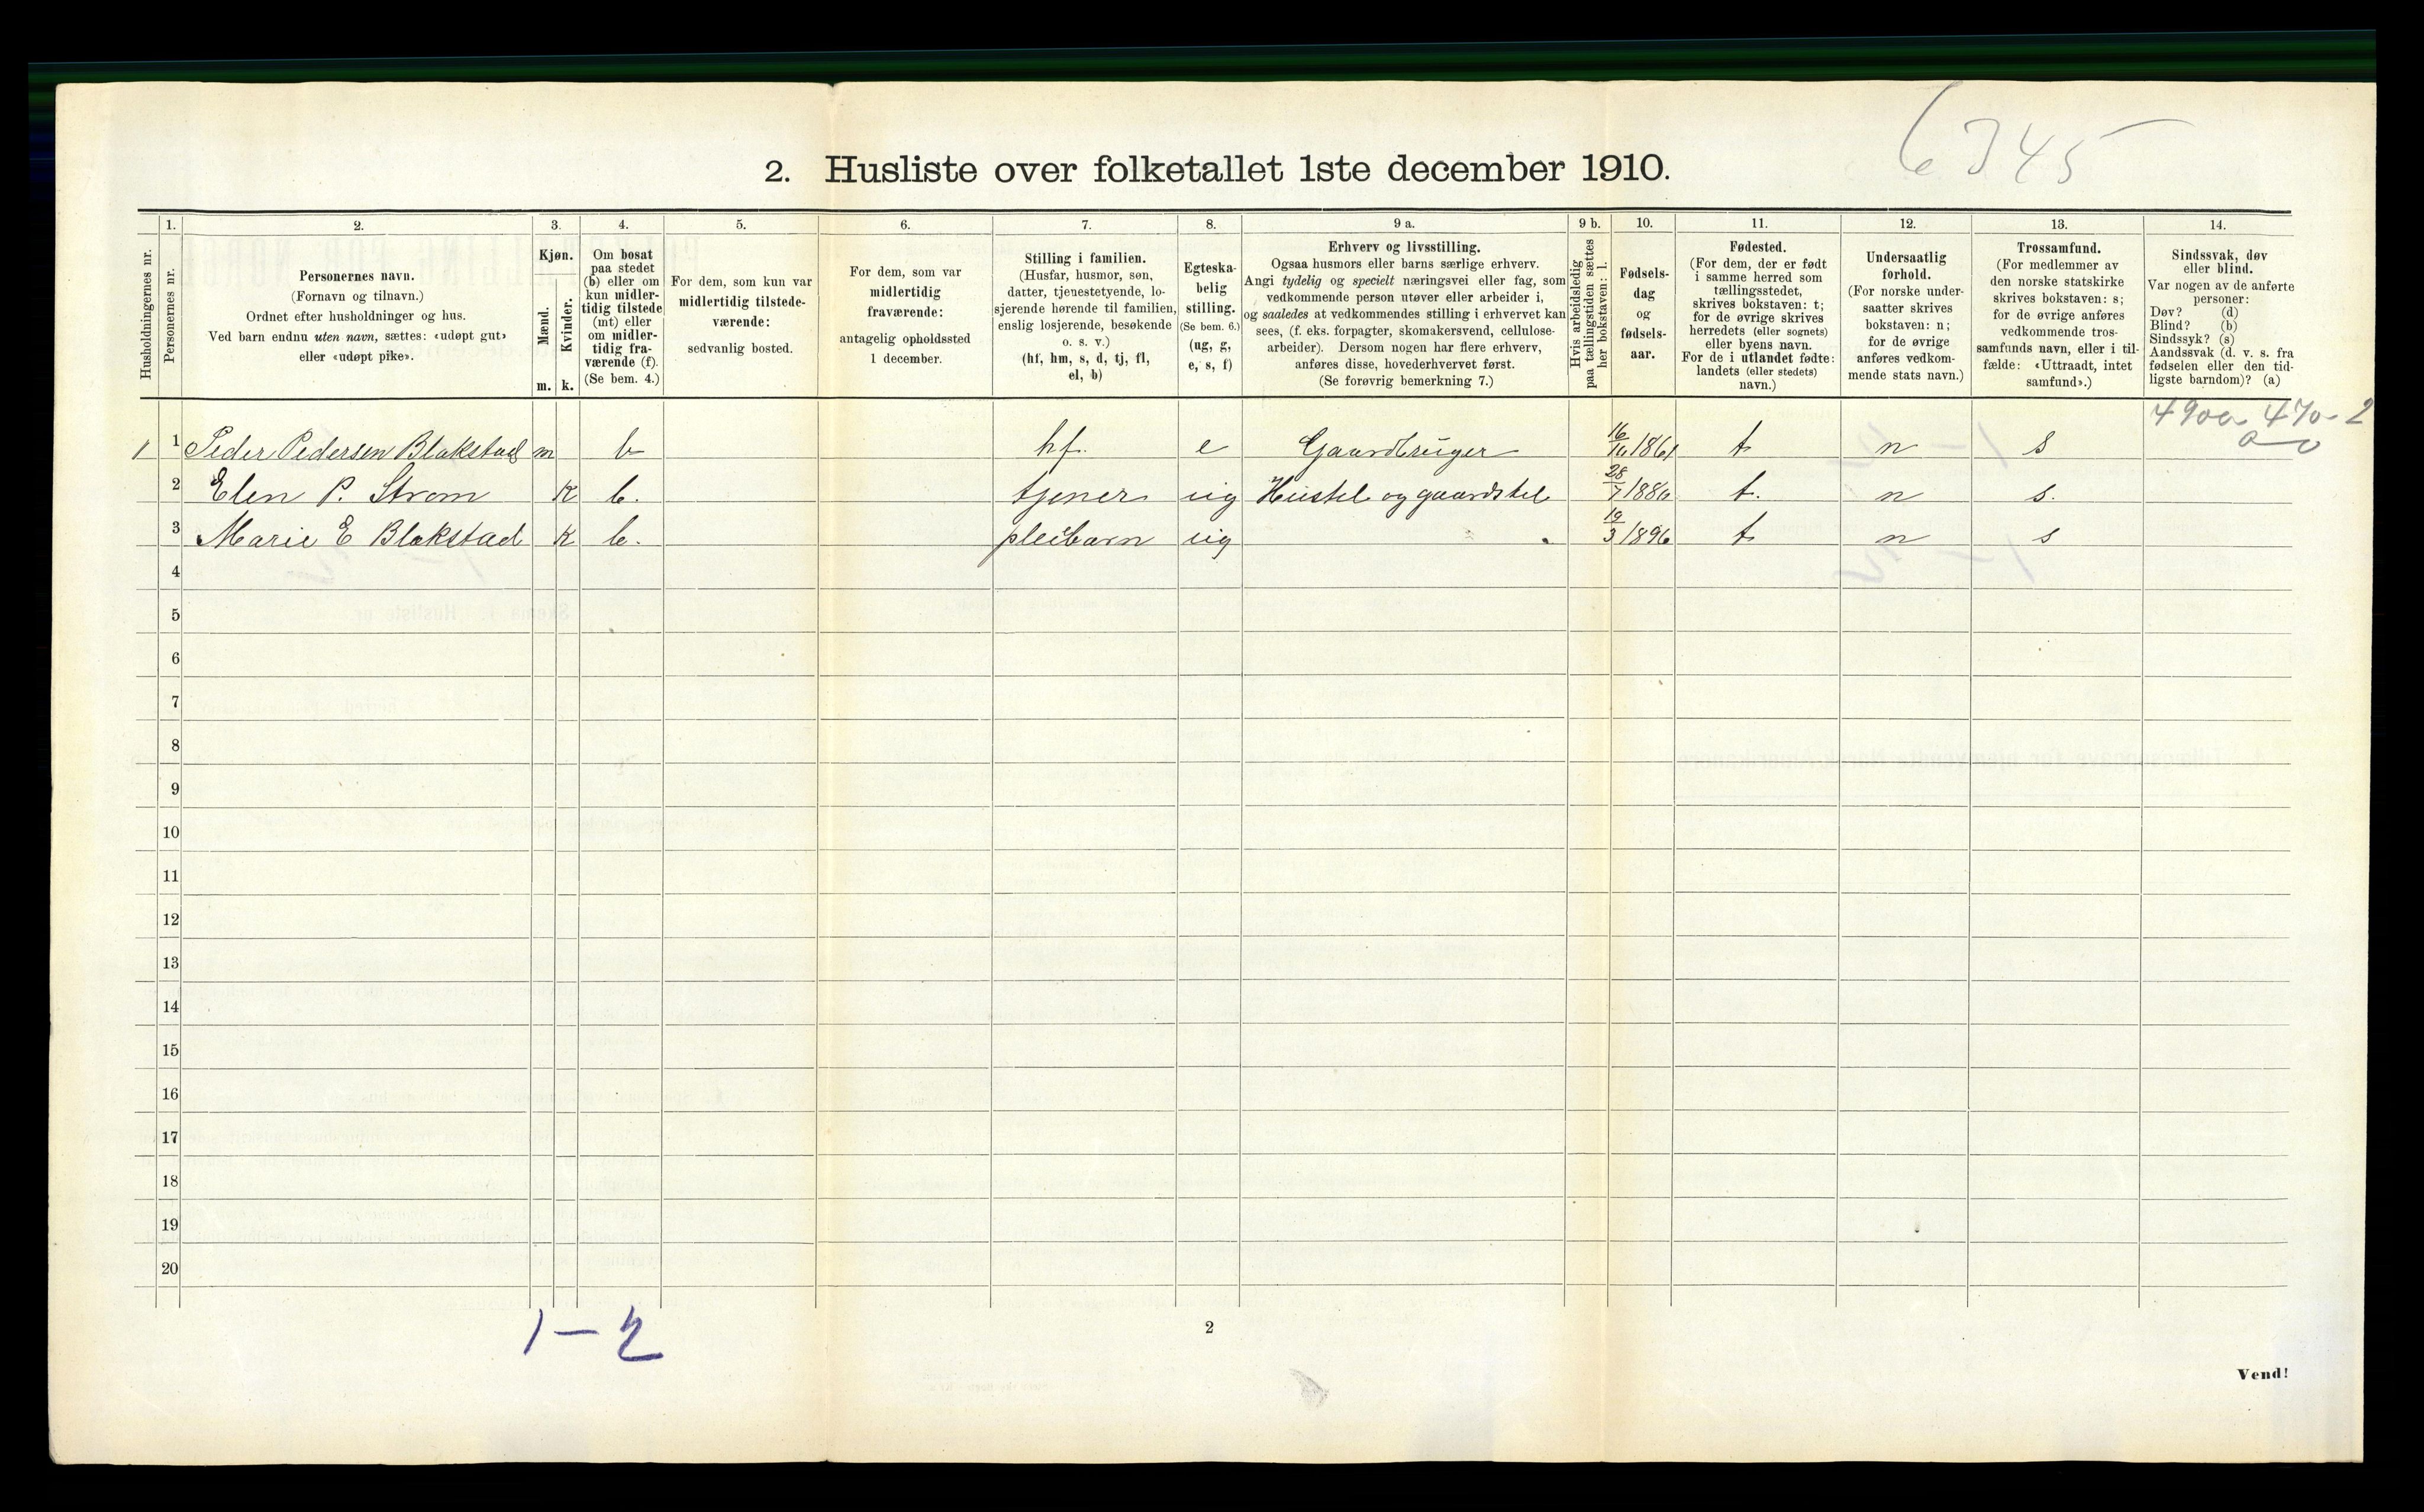 6345
2. Husliste over folketallet 1ste december 1910.
Husholdningernes nr.
1. Personernes nr.
2. Personernes navn. (Fornavn og tilnavn.) Ordnet efter husholdninger og hus. Ved barn endnu uten navn, sættes: «udøpt gut» eller «udøpt pike».
3. Kjøn. Mænd. m. Kvinder. k.
4. Om bosat paa stedet (b) eller om kun midlertidig tilstede (mt) eller om midlertidig fraværende (f). (Se bem. 4.)
5. For dem, som kun var midlertidig tilstedeværende: sedvanlig bosted.
6. For dem, som var midlertidig fraværende: antagelig opholdssted 1 december.
7. Stilling i familien. (Husfar, husmor, søn, datter, tjenestetyende, losjerende hørende til familien, enslig losjerende, besøkende o. s. v.) (hf, hm, s, d, tj, fl, el, b)
8. Egteskabelig stilling. (Se bem. 6.) (ug, g, e, s, f)
9 a. Erhverv og livsstilling. Ogsaa husmors eller barns særlige erhverv. Angi tydelig og specielt næringsvei eller fag, som vedkommende person utøver eller arbeider i, og saaledes at vedkommendes stilling i erhvervet kan sees, (f. eks. forpagter, skomakersvend, cellulosearbeider). Dersom nogen har flere erhverv, anføres disse, hovederhvervet først. (Se forøvrig bemerkning 7.)
9 b. Hvis arbeidsledig paa tællingstiden sættes her bokstaven: l.
10. Fødselsdag og fødselsaar.
11. Fødested. (For dem, der er født i samme herred som tællingsstedet, skrives bokstaven: t; for de øvrige skrives herredets (eller sognets) eller byens navn. For de i utlandet fødte: landets (eller stedets) navn.)
12. Undersaatlig forhold. (For norske undersaatter skrives bokstaven: n; for de øvrige anføres vedkommende stats navn.)
13. Trossamfund. (For medlemmer av den norske statskirke skrives bokstaven: s; for de øvrige anføres vedkommende trossamfunds navn, eller i tilfælde: «Uttraadt, intet samfund».)
14. Sindssvak, døv eller blind. Var nogen av de anførte personer: Døv? (d) Blind? (b) Sindssyk? (s) Aandssvak (d. v. s. fra fødselen eller den tidligste barndom)? (a)
1 1 Peder Pedersen Blakstad m b hf. e Gaardbruger 1861 t n s
2 Elen P. Strøm k b. tjener ug Hustel og gaardstel 28/7 t. n s.
3 Marie E Blakstad k b. pleibarn ug 19/3 1896 t n s
4
5
6
7
8
9
10
11
12
13
14
15
16
17
18
19
20
1 – 2
2
Vend!